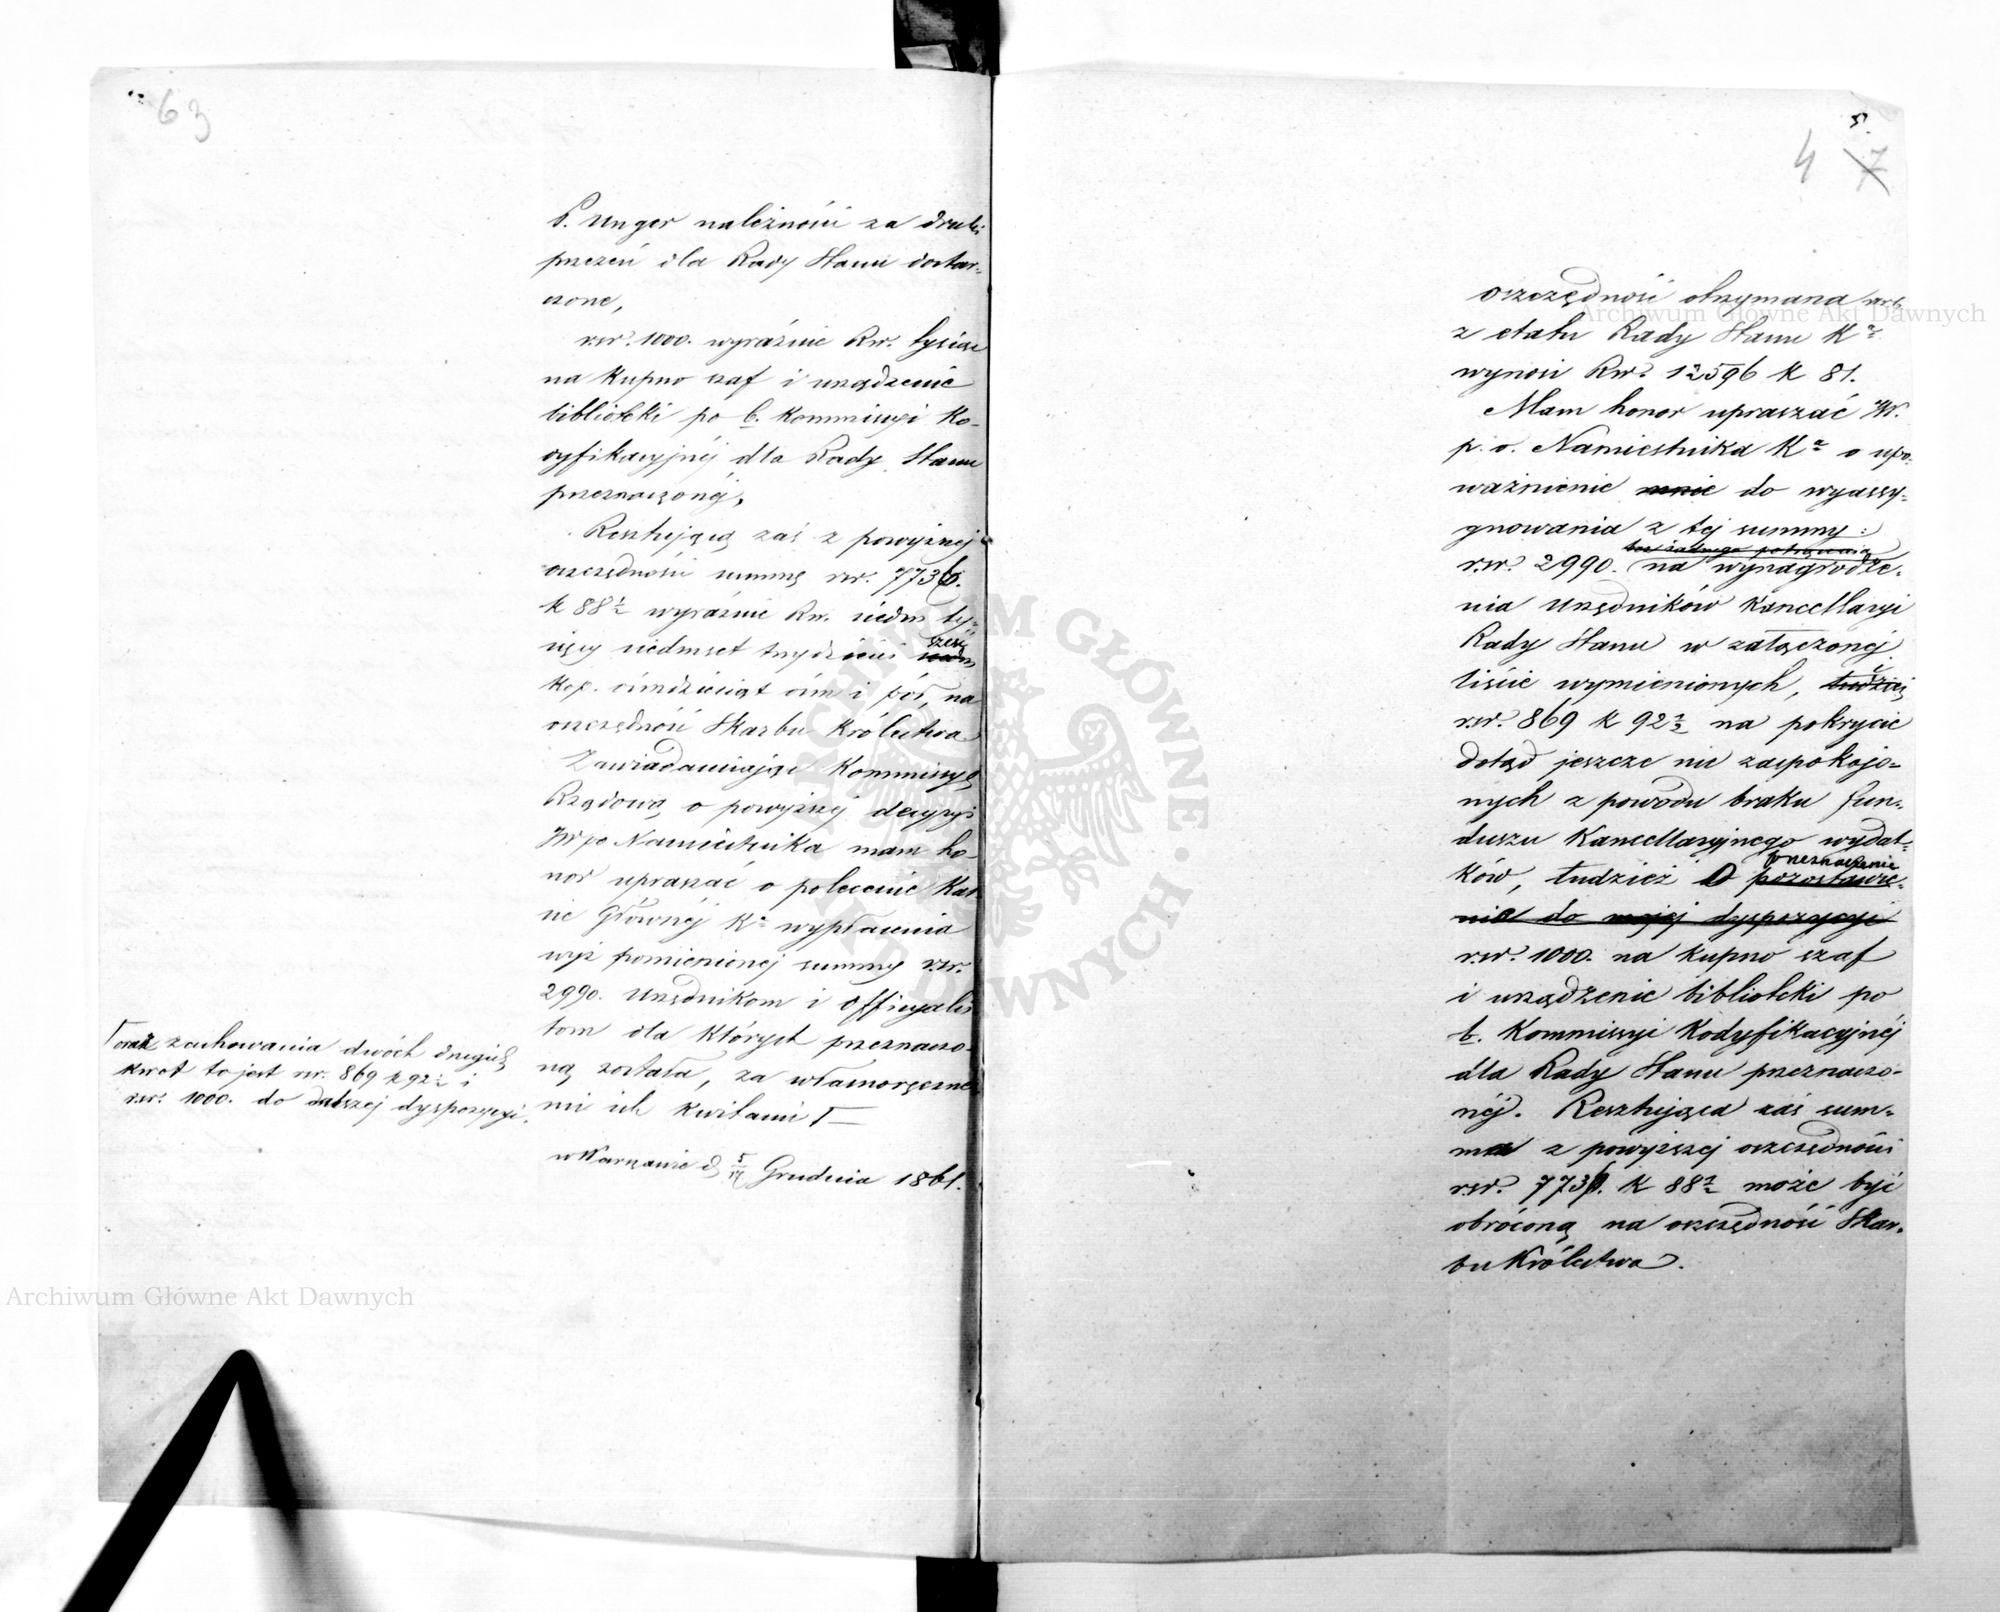 63
P. Unger należności za druki
przezeń dla Rady Stanu dostar-
czone,
rsr. 1000. wyraźnie Rsr. tysiąc
na kupno szaf i urządzenie
biblioteki po b. Kommissyi Ko-
dyfikacyjnéj dla Rady Stanu
przeznaczonéj,
Resztującą zaś z powyższej
oszczędności summę rsr. 7736.
k 88½ wyraźnie Rsr. siedm ty-
sięcy siedmset trzydzieści sześć
kop. ośmdziesiąt ośm i pół, na
oszczędność Skarbu Królestwa.
Zawiadamiając Kommissyę
Rządową o powyższéj decyzyi
JW po Namiestnika mam ho-
nor upraszać o polecenie Kas-
sie Głównéj Ka wypłacenia
wyż pomienionej summy rsr.
2990. Urzędnikom i Officyalis
tom dla których przeznaczo-
ną została, za własnoręczne-
mi ich kwitami Γ—
w Warszawie d 5/17 Grudnia 1861.
Γ oraz zachowania dwóch drugich
kwot to jest rsr. 869 k 92½ i
rsr. 1000. do dalszej dyspozycyi.
5.
4 7
oszczędność otrzymana
z etatu Rady Stanu Ka
wynosi Rsr. 12596 k 81.
Mam honor upraszać JW.
p. o. Namiestnika Ka o upo-
ważnienie mnie do wyassy-
gnowania z téj summy:
bez żadnego potrącenia
rsr. 2990. na wynagrodze-
nia Urzędników Kancellaryi
Rady Stanu w załączonéj
liście wymienionych, tudzież i
rsr. 869 k 92½ na pokrycie
dotąd jeszcze nie zaspokojo-
nych z powodu braku fun-
duszu Kancellaryjnego wydat-
przeznaczenie
ków, tudzież o pozostawie-
nie do mojej dyspozycyi
rsr. 1000. na kupno szaf
i urządzenie biblioteki po
b. Kommissyi Kodyfikacyjnéj
dla Rady Stanu przeznaczo-
néj. Resztująca zaś sum-
ma z powyższéj oszczędności
rsr. 7736. k 88½ może być
obróconą na oszczędność Skar-
bu Królestwa.
Archiwum Główne Akt Dawnych
Archiwum Główne Akt Dawnych
ARCHIWUM GŁÓWNE AKT DAWNYCH